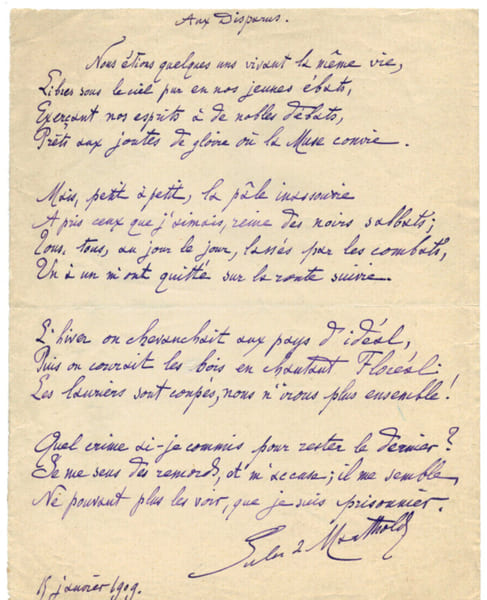 Aux Disparus.
Nous étions quelques uns vivant la même vie,
Libres sous le ciel pur en nos jeunes ébats,
Exerçant nos esprits à de nobles débats,
Prêts aux joutes de gloire où la Muse convie.
Mais, petit à petit, la pâle inassouvie
A pris ceux que j'aimais, reine des noirs sabbats;
Tous, tous, au jour le jour, lassés par les combats,
Un à un m'ont quitté sur la route suivie.
L'hiver on chevauchait aux pays d'idéal,
Puis on courait les bois en chantant Floréal:
Les lauriers sont coupés, nous n'irons plus ensemble!
Quel crime ai-je commis pour rester le dernier?
Je me sens des remords, et m'accuse; il me semble,
Ne pouvant plus les voir, que je suis prisonnier.
Jules de Marthold
15 janvier 1909.